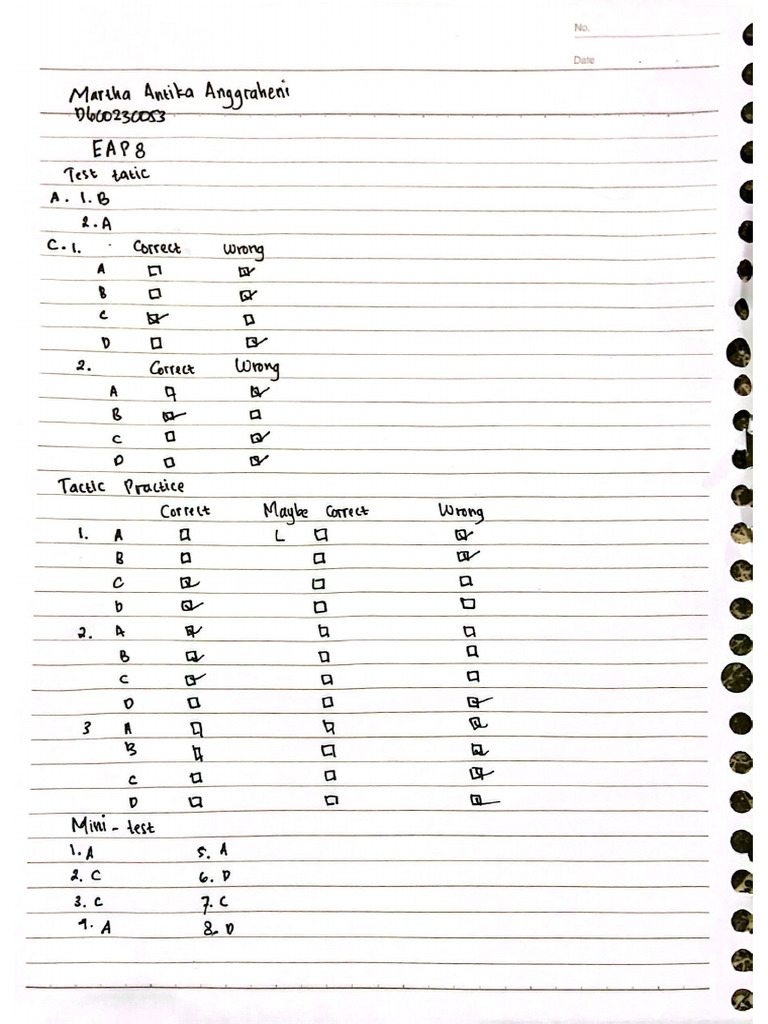 No.
Date
Martha Antika Anggraheni
D600230053
EAP 8
Test tatic
A. 1. B
2. A
C. 1. Correct Wrong
A ☐ ☑
B ☐ ☑
C ☑ ☐
D ☐ ☑
2. Correct Wrong
A ☐ ☑
B ☑ ☐
C ☐ ☑
D ☐ ☑
Tactic Practice
Correct Maybe Correct Wrong
1. A ☐ L ☐ ☑
B ☐ ☐ ☑
C ☑ ☐ ☐
D ☑ ☐ ☐
2. A ☑ ☐ ☐
B ☑ ☐ ☐
C ☑ ☐ ☐
D ☐ ☐ ☑
3 A ☐ ☐ ☑
B ☐ ☐ ☑
C ☐ ☐ ☑
D ☐ ☐ ☑
Mini - test
1. A 5. A
2. C 6. D
3. C 7. C
4. A 8. D